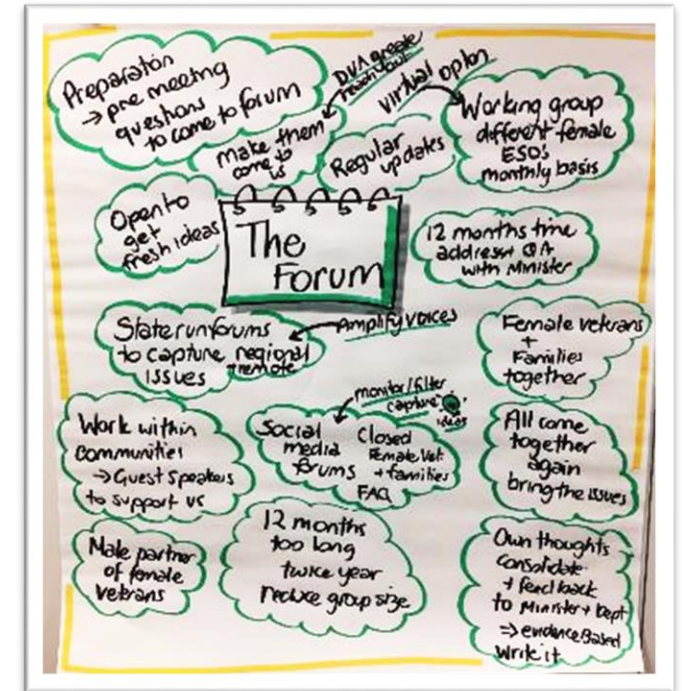 Preparation
→ pre meeting
questions
to come to forum
DVA create
reach out
make them
come to
us
virtual opton
Regular
updates
Working group
different female
ESO's
monthly basis
Open to
get
fresh ideas
The
Forum
12 months time
address + QA
with Minister
State run forums
to capture regional
+ remote
issues
Amplify voices
Female vetrans
+
Families
together
Work within
communities
→ Guest speakers
to support us
monitor/filter
capture
ideas
Social
media
forums
Closed
Female Vet
+ families
FAQ
All come
together
again
bring the issues
Male partner
of female
vetrans
12 months
too long
twice year
reduce group size
Own thoughts
consolidate
+ feed back
to Minister + Dept
⇒ evidence Based
write it